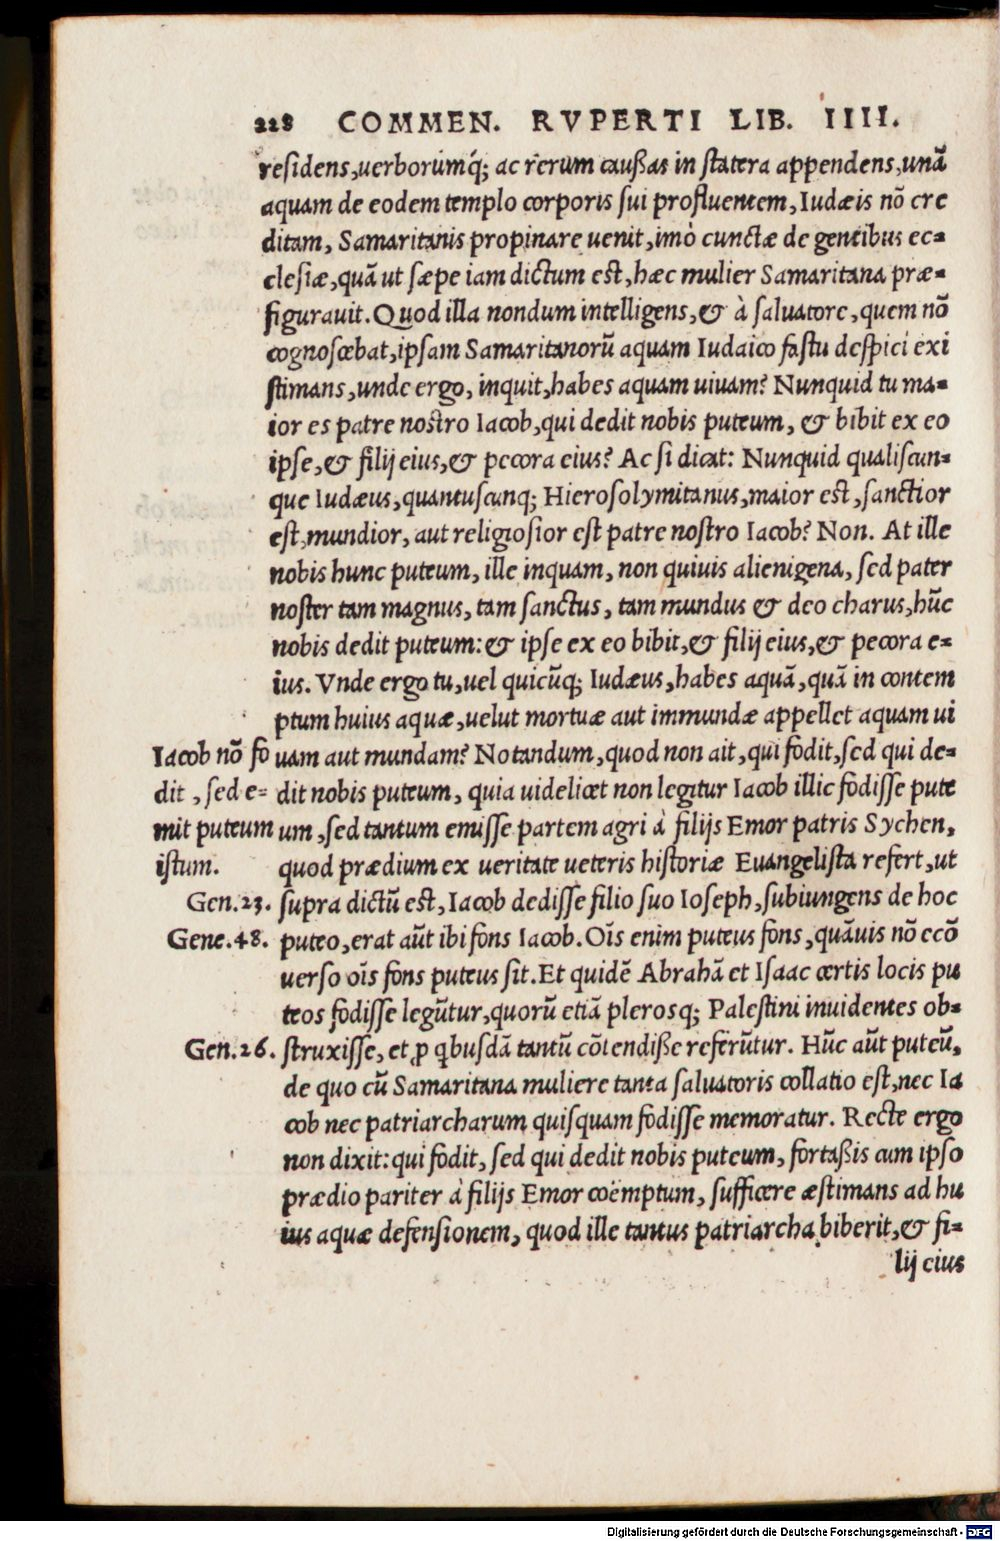 228 COMMEN. RVPERTI LIB. IIII.
residens,uerborumq́; ac rerum caußas in statera appendens,unã
aquam de eodem templo corporis sui profluentem,Iudæis nõ cre
ditam, Samaritanis propinare uenit,imò cunctæ de gentibus ec=
clesiæ,quã ut sæpe iam dictum est,hæc mulier Samaritana præ=
figurauit.Quod illa nondum intelligens,& à saluatore,quem nõ
cognoscebat,ipsam Samaritanorũ aquam Iudaico fastu despici exi
stimans,unde ergo, inquit,habes aquam uiuam? Nunquid tu ma=
ior es patre nostro Iacob,qui dedit nobis puteum, & bibit ex eo
ipse,& filij eius,& pecora eius? Ac si dicat: Nunquid qualiscun=
que Iudæus,quantuscunq; Hierosolymitanus,maior est,sanctior
est,mundior, aut religiosior est patre nostro Iacob? Non. At ille
nobis hunc puteum, ille inquam, non quiuis alienigena, sed pater
noster tam magnus, tam sanctus, tam mundus & deo charus,hũc
nobis dedit puteum:& ipse ex eo bibit,& filij eius,& pecora e=
ius. Vnde ergo tu,uel quicũq; Iudæus,habes aquã,quã in contem
ptum huius aquæ,uelut mortuæ aut immundæ appellet aquam ui
Iacob nõ fo uam aut mundam? Notandum,quod non ait,qui fodit,sed qui de=
dit ,sed e= dit nobis puteum, quia uidelicet non legitur Iacob illic fodisse pute
mit puteum um ,sed tantum emisse partem agri à filijs Emor patris Sychen,
istum. quod prædium ex ueritate ueteris historiæ Euangelista refert,ut
Gen.23. supra dictũ est,Iacob dedisse filio suo Ioseph,subiungens de hoc
Gene.48. puteo,erat aũt ibi fons Iacob.Oĩs enim puteus fons,quãuis nõ ecõ
uerso oĩs fons puteus sit.Et quidẽ Abrahã et Isaac certis locis pu
teos fodisse legũtur,quorũ etiã plerosq; Palestini inuidentes ob=
Gen.26. struxisse, et ꝓ qbusdã tantũ cõtendiße referũtur. Hũc aũt puteũ,
de quo cũ Samaritana muliere tanta saluatoris collatio est,nec Ia
cob nec patriarcharum quisquam fodisse memoratur. Recte ergo
non dixit:qui fodit, sed qui dedit nobis puteum, fortaßis cum ipso
prædio pariter à filijs Emor coëmptum, sufficere æstimans ad hu
ius aquæ defensionem, quod ille tantus patriarcha biberit,& fi=
lij eius
Digitalisierung gefördert durch die Deutsche Forschungsgemeinschaft - DFG